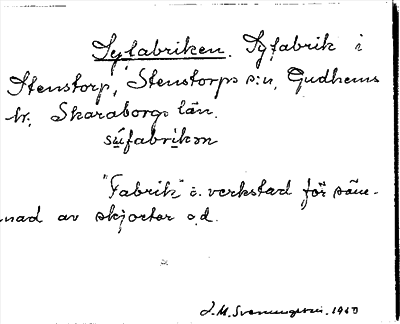 Syfabriken. Syfabrik i
Stenstorp, Stenstorps s:n, Gudhems
hr. Skaraborgs län.
sýfabrikən
"Fabrik" o. verkstad för söm-
nad av skjortor o.d.
J.M. Svenungsson. 1960